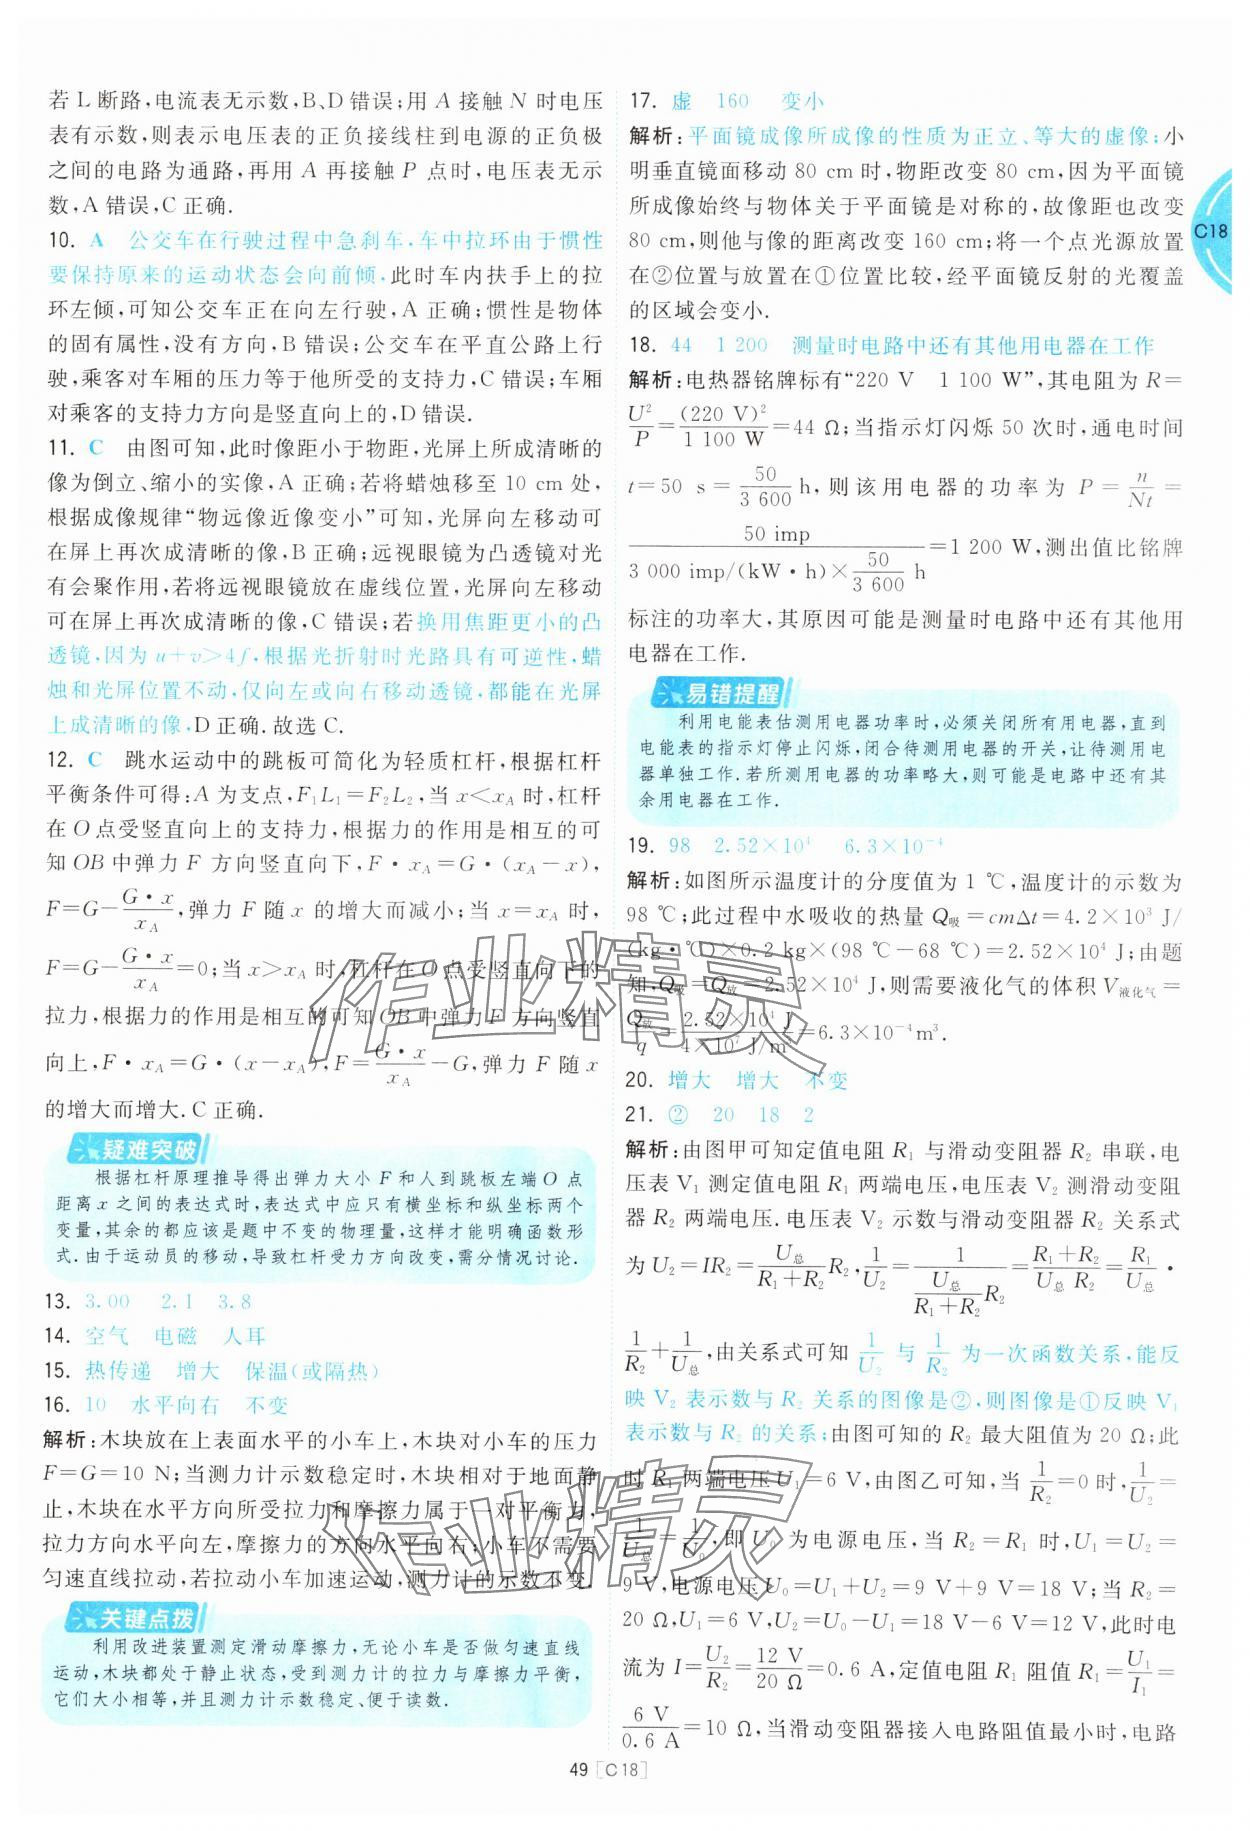 若 L 断路,电流表无示数,B、D 错误;用 A 接触 N 时电压
表有示数,则表示电压表的正负接线柱到电源的正负极
之间的电路为通路,再用 A 再接触 P 点时,电压表无示
数,A 错误,C 正确.
10. A 公交车在行驶过程中急刹车,车中拉环由于惯性
要保持原来的运动状态会向前倾,此时车内扶手上的拉
环左倾,可知公交车正在向左行驶,A 正确;惯性是物体
的固有属性,没有方向,B 错误;公交车在平直公路上行
驶,乘客对车厢的压力等于他所受的支持力,C 错误;车厢
对乘客的支持力方向是竖直向上的,D 错误.
11. C 由图可知,此时像距小于物距,光屏上所成清晰的
像为倒立、缩小的实像,A 正确;若将蜡烛移至 10 cm 处,
根据成像规律“物远像近像变小”可知,光屏向左移动可
在屏上再次成清晰的像,B 正确;远视眼镜为凸透镜对光
有会聚作用,若将远视眼镜放在虚线位置,光屏向左移动
可在屏上再次成清晰的像,C 错误;若换用焦距更小的凸
透镜,因为 u+v>4f,根据光折射时光路具有可逆性,蜡
烛和光屏位置不动,仅向左或向右移动透镜,都能在光屏
上成清晰的像,D 正确.故选 C.
12. C 跳水运动中的跳板可简化为轻质杠杆,根据杠杆
平衡条件可得:A 为支点,F₁L₁=F₂L₂,当 x<x_A 时,杠杆
在 O 点受竖直向上的支持力,根据力的作用是相互的可
知 OB 中弹力 F 方向竖直向下,F·x_A=G·(x_A-x),
F=G-\frac{G·x}{x_A},弹力 F 随 x 的增大而减小;当 x=x_A 时,
F=G-\frac{G·x}{x_A}=0;当 x>x_A 时,杠杆在 O 点受竖直向下的
拉力,根据力的作用是相互的可知 OB 中弹力 F 方向竖直
向上,F·x_A=G·(x-x_A),F=\frac{G·x}{x_A}-G,弹力 F 随 x
的增大而增大.C 正确.
疑难突破
根据杠杆原理推导得出弹力大小 F 和人到跳板左端 O 点
距离 x 之间的表达式时,表达式中应只有横坐标和纵坐标两个
变量,其余的都应该是题中不变的物理量,这样才能明确函数形
式.由于运动员的移动,导致杠杆受力方向改变,需分情况讨论.
13. 3.00 2.1 3.8
14. 空气 电磁 人耳
15. 热传递 增大 保温(或隔热)
16. 10 水平向右 不变
解析:木块放在上表面水平的小车上,木块对小车的压力
F=G=10 N;当测力计示数稳定时,木块相对于地面静
止,木块在水平方向所受拉力和摩擦力属于一对平衡力,
拉力方向水平向左,摩擦力的方向水平向右;小车不需要
匀速直线拉动,若拉动小车加速运动,测力计的示数不变.
关键点拨
利用改进装置测定滑动摩擦力,无论小车是否做匀速直线
运动,木块都处于静止状态,受到测力计的拉力与摩擦力平衡,
它们大小相等,并且测力计示数稳定、便于读数.
17. 虚 160 变小
解析:平面镜成像所成像的性质为正立、等大的虚像;小
明垂直镜面移动 80 cm 时,物距改变 80 cm,因为平面镜
所成像始终与物体关于平面镜是对称的,故像距也改变
80 cm,则他与像的距离改变 160 cm;将一个点光源放置
在②位置与放置在①位置比较,经平面镜反射的光覆盖
的区域会变小.
18. 44 1 200 测量时电路中还有其他用电器在工作
解析:电热器铭牌标有“220 V 1 100 W”,其电阻为 R=
\frac{U²}{P}=\frac{(220 V)²}{1 100 W}=44 Ω;当指示灯闪烁 50 次时,通电时间
t=50 s=\frac{50}{3 600}h,则该用电器的功率为 P=\frac{n}{Nt}=
\frac{50 imp}{3 000 imp/(kW·h)×\frac{50}{3 600} h}=1 200 W,测出值比铭牌
标注的功率大,其原因可能是测量时电路中还有其他用
电器在工作.
易错提醒
利用电能表估测用电器功率时,必须关闭所有用电器,直到
电能表的指示灯停止闪烁,闭合待测用电器的开关,让待测用电
器单独工作.若所测用电器的功率略大,则可能是电路中还有其
余用电器在工作.
19. 98 2.52×10⁴ 6.3×10⁻⁴
解析:如图所示温度计的分度值为 1 ℃,温度计的示数为
98 ℃;此过程中水吸收的热量 Q吸=cmΔt=4.2×10³ J/
(kg·℃)×0.2 kg×(98 ℃-68 ℃)=2.52×10⁴ J;由题
知,Q吸=Q放=2.52×10⁴ J,则需要液化气的体积 V液化气=
\frac{Q放}{q}=\frac{2.52×10⁴ J}{4×10⁷ J/m³}=6.3×10⁻⁴m³.
20. 增大 增大 不变
21. ② 20 18 2
解析:由图甲可知定值电阻 R₁ 与滑动变阻器 R₂ 串联,电
压表 V₁ 测定值电阻 R₁ 两端电压,电压表 V₂ 测滑动变阻
器 R₂ 两端电压.电压表 V₂ 示数与滑动变阻器 R₂ 关系式
为 U₂=IR₂=\frac{U总}{R₁+R₂}R₂,\frac{1}{U₂}=\frac{1}{\frac{U总}{R₁+R₂}R₂}=\frac{R₁+R₂}{U总 R₂}=\frac{R₁}{U总}·
\frac{1}{R₂}+\frac{1}{U总},由关系式可知 \frac{1}{U₂} 与 \frac{1}{R₂} 为一次函数关系,能反
映 V₂ 表示数与 R₂ 关系的图像是②,则图像是①反映 V₁
表示数与 R₂ 的关系;由图可知的 R₂ 最大阻值为 20 Ω;此
时 R₁ 两端电压 U₁=6 V,由图乙可知,当 \frac{1}{R₂}=0 时,\frac{1}{U₂}=
\frac{1}{U总}=\frac{1}{U₀},即 U₀ 为电源电压,当 R₂=R₁ 时,U₁=U₂=
9 V,电源电压 U₀=U₁+U₂=9 V+9 V=18 V;当 R₂=
20 Ω,U₁=6 V,U₂=U₀-U₁=18 V-6 V=12 V,此时电
流为 I=\frac{U₂}{R₂}=\frac{12 V}{20 Ω}=0.6 A,定值电阻 R₁ 阻值 R₁=\frac{U₁}{I₁}=
\frac{6 V}{0.6 A}=10 Ω,当滑动变阻器接入电路阻值最小时,电路
C18
49 [C18]
作业精灵
作业精灵